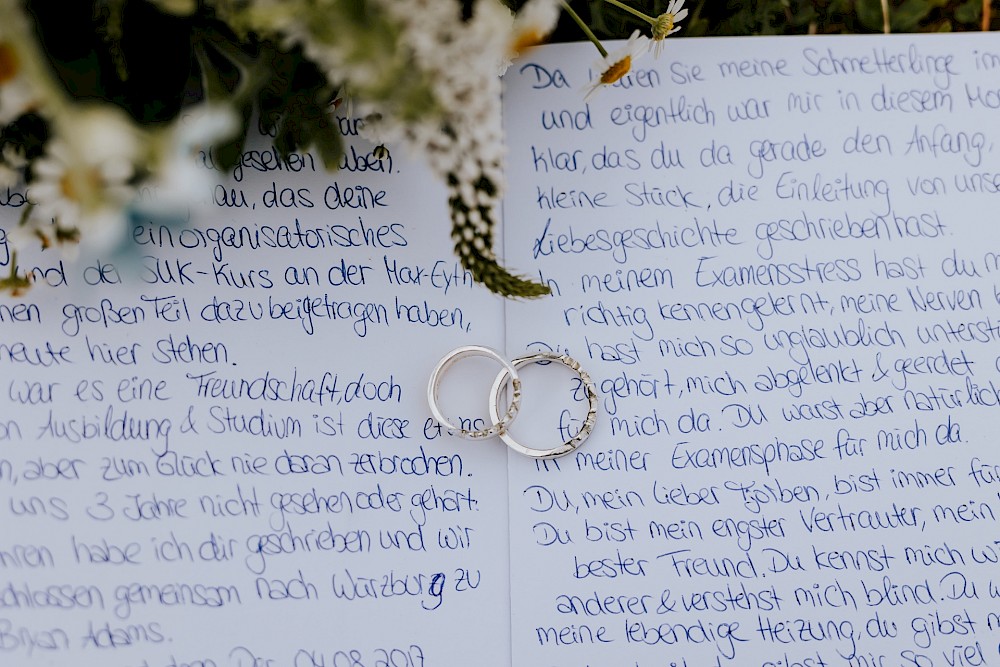 gesehen haben.
das deine
ein organisatorisches
und der JUK-Kurs an der Max-Eyth
nen großen Teil dazu beigetragen haben,
heute hier stehen.
war es eine Freundschaft, doch
on Ausbildung & Studium ist diese etwas
n, aber zum Glück nie daran zerbrochen.
uns 3 Jahre nicht gesehen oder gehört.
hren habe ich dir geschrieben und wir
schlossen gemeinsam nach Würzburg zu
Bryan Adams.
04.08.2017
Da waren sie meine Schmetterlinge im
und eigentlich war mir in diesem Mo
klar, das du da gerade den Anfang,
kleine Stück, die Einleitung von unse
Liebesgeschichte geschrieben hast.
In meinem Examensstress hast du m
richtig kennengelernt, meine Nerven
Du hast mich so unglaublich unterst
zugehört, mich abgelenkt & geerdet
für mich da. Du warst aber natürlich
in meiner Examensphase für mich da.
Du, mein lieber Torben, bist immer für
Du bist mein engster Vertrauter, mein
bester Freund. Du kennst mich wi
anderer & verstehst mich blind. Du w
meine lebendige Heizung, du gibst m
gibst mir so viel